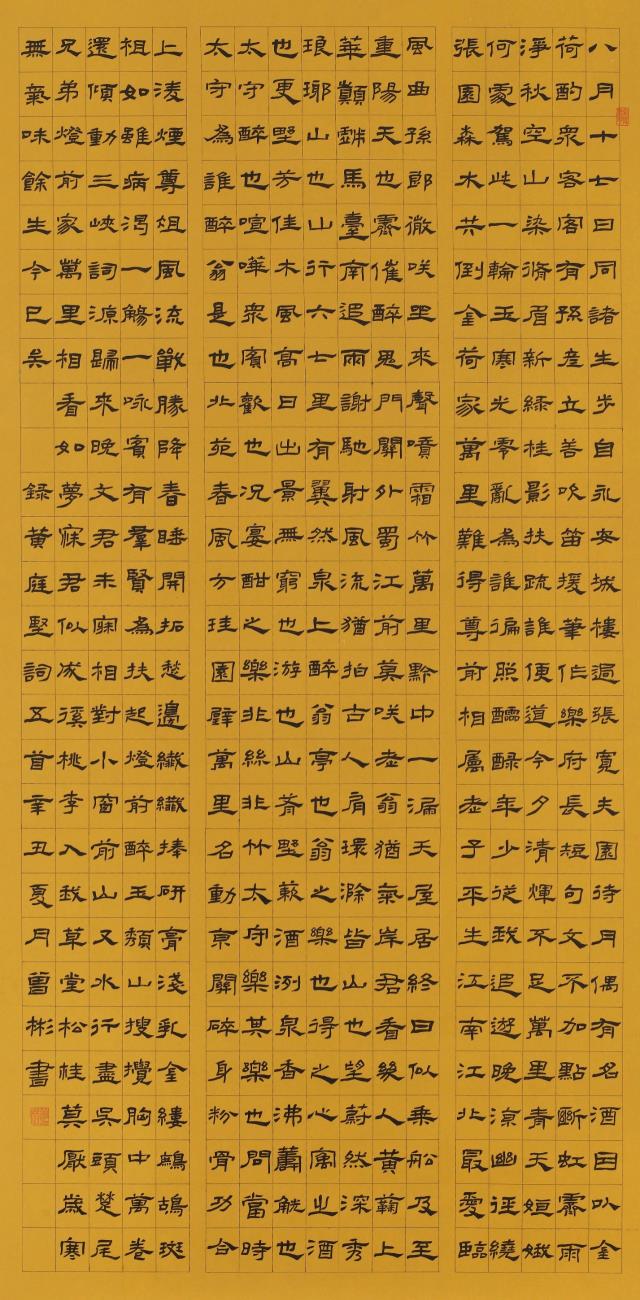 八月十七日同諸生步自永安城樓過張寬夫園待月偶有名酒因以金
荷酌眾客客有孫彥立善吹笛援筆作樂府長短句文不加點斷虹霽雨
淨秋空山染脩眉新綠桂影扶疏誰便道今夕清輝不足萬里青天姮娥
何處駕此一輪玉寒光零亂為誰偏照醽醁年少從我追遊晚涼幽徑繞
張園森木共倒金荷家萬里難得尊前相屬老子平生江南江北最愛臨
風曲孫郎微咲坐來聲噴霜竹萬里黔中一漏天屋居終日似乘船及至
重陽天也霽催醉鬼門關外蜀江前莫咲老翁猶氣岸君看幾人黃菊上
華顛戲馬臺南追兩謝馳射風流猶拍古人肩環滁皆山也望蔚然深秀
琅耶山也山行六七里有翼然泉上醉翁亭也翁之樂也得之心寓之酒
也更野芳佳木風高日出景無窮也游也山肴野蔌酒洌泉香沸籌觥也
太守醉也喧嘩眾賓歡也況宴酣之樂非絲非竹太守樂其樂也問當時
太守為誰醉翁是也北苑春風方珪圓璧萬里名動京關碎身粉骨功合
上淩煙尊俎風流戰勝降春睡開拓愁邊纖纖捧研膏淺乳金縷鷓鴣斑
相如雖病渴一觴一詠賓有群賢為扶起燈前醉玉頹山搜攪胸中萬卷
還傾動三峽詞源歸來晚文君未寐相對小窗前山又水行盡吳頭楚尾
兄弟燈前家萬里相看如夢寐君似成蹊桃李入我草堂松桂莫厭歲寒
無氣味餘生今已矣 錄黃庭堅詞五首辛丑夏月曾彬書